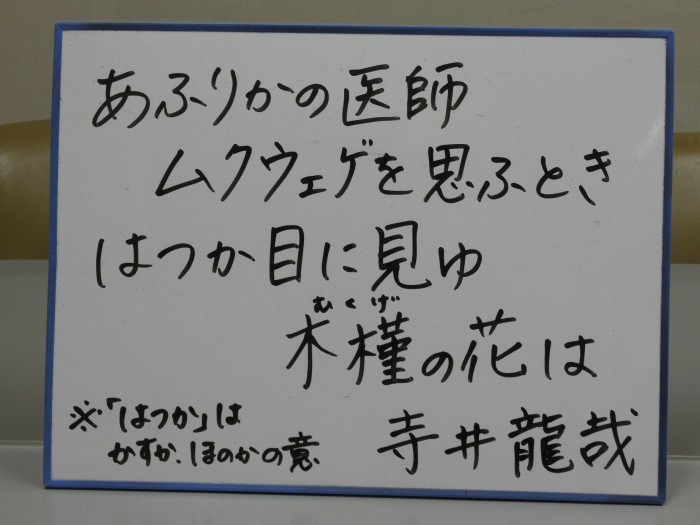 あふりかの医師
ムクウェゲを思ふとき
はつか目に見ゆ
むくげ
木槿の花は
※「はつか」は
かすか、ほのかの意
寺井龍哉